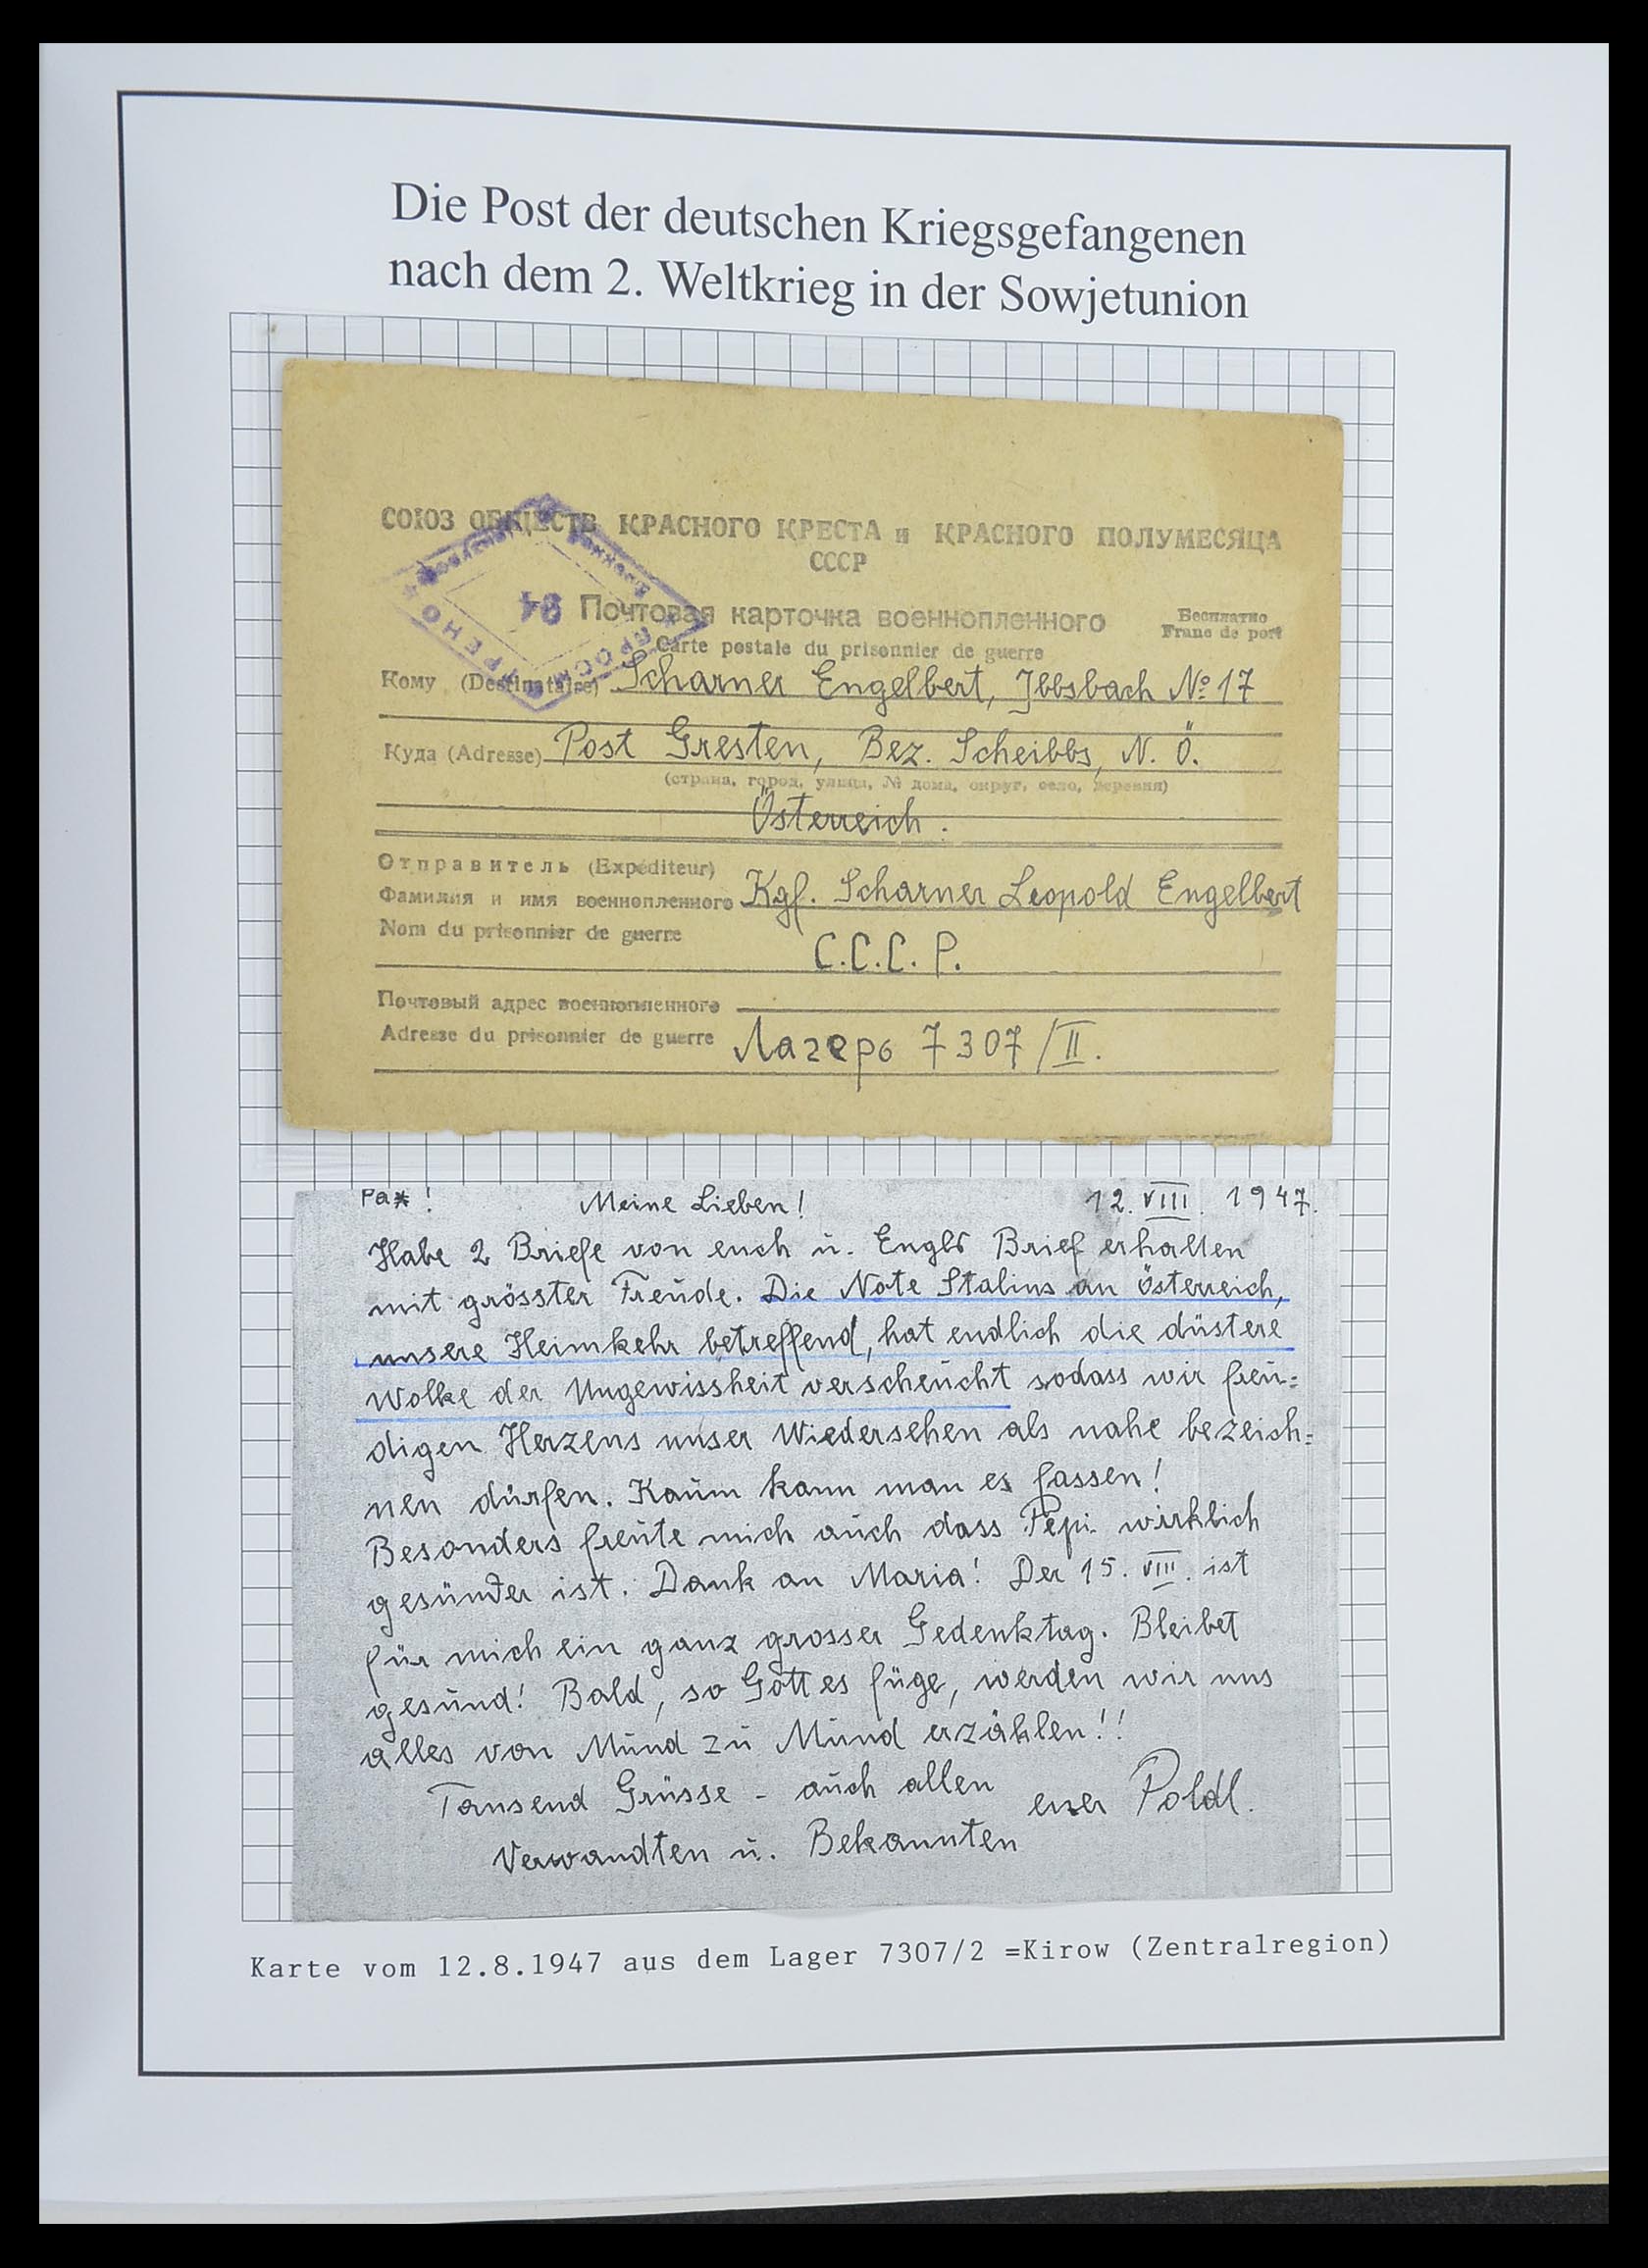 Die Post der deutschen Kriegsgefangenen
nach dem 2. Weltkrieg in der Sowjetunion
СОЮЗ ОБЩЕСТВ КРАСНОГО КРЕСТА и КРАСНОГО ПОЛУМЕСЯЦА
СССР
94
Почтовая карточка военнопленного
Бесплатно
Franc de port
Carte postale du prisonnier de guerre
Кому (Destinataire) Scharner Engelbert, Jbbsbach № 17
Куда (Adresse) Post Gresten, Bez. Scheibbs, N. Ö.
(страна, город, улица, № дома, округ, село, деревня)
Österreich.
Отправитель (Expéditeur)
Фамилия и имя военнопленного Kgf. Scharner Leopold Engelbert
Nom du prisonnier de guerre
C.C.C.P.
Почтовый адрес военнопленного
Adresse du prisonnier de guerre Лагерь 7307/II.
ВОЕННАЯ ЦЕНЗУРА
ПРОСМОТРЕНО
Pax! Meine Lieben! 12. VIII. 1947.
Habe 2 Briefe von euch u. Engls Brief erhalten
mit grösster Freude. Die Note Stalins an Österreich,
unsere Heimkehr betreffend, hat endlich die düstere
Wolke der Ungewissheit verscheucht sodass wir freu=
digen Herzens unser Wiedersehen als nahe bezeich=
nen dürfen. Kaum kann man es fassen!
Besonders freute mich auch dass Pepi wirklich
gesünder ist. Dank an Maria! Der 15. VIII. ist
für mich ein ganz grosser Gedenktag. Bleibet
gesund! Bald, so Gott es füge, werden wir uns
alles von Mund zu Mund erzählen!!
Tausend Grüsse - auch allen euer Poldl.
Verwandten u. Bekannten
Karte vom 12.8.1947 aus dem Lager 7307/2 =Kirow (Zentralregion)